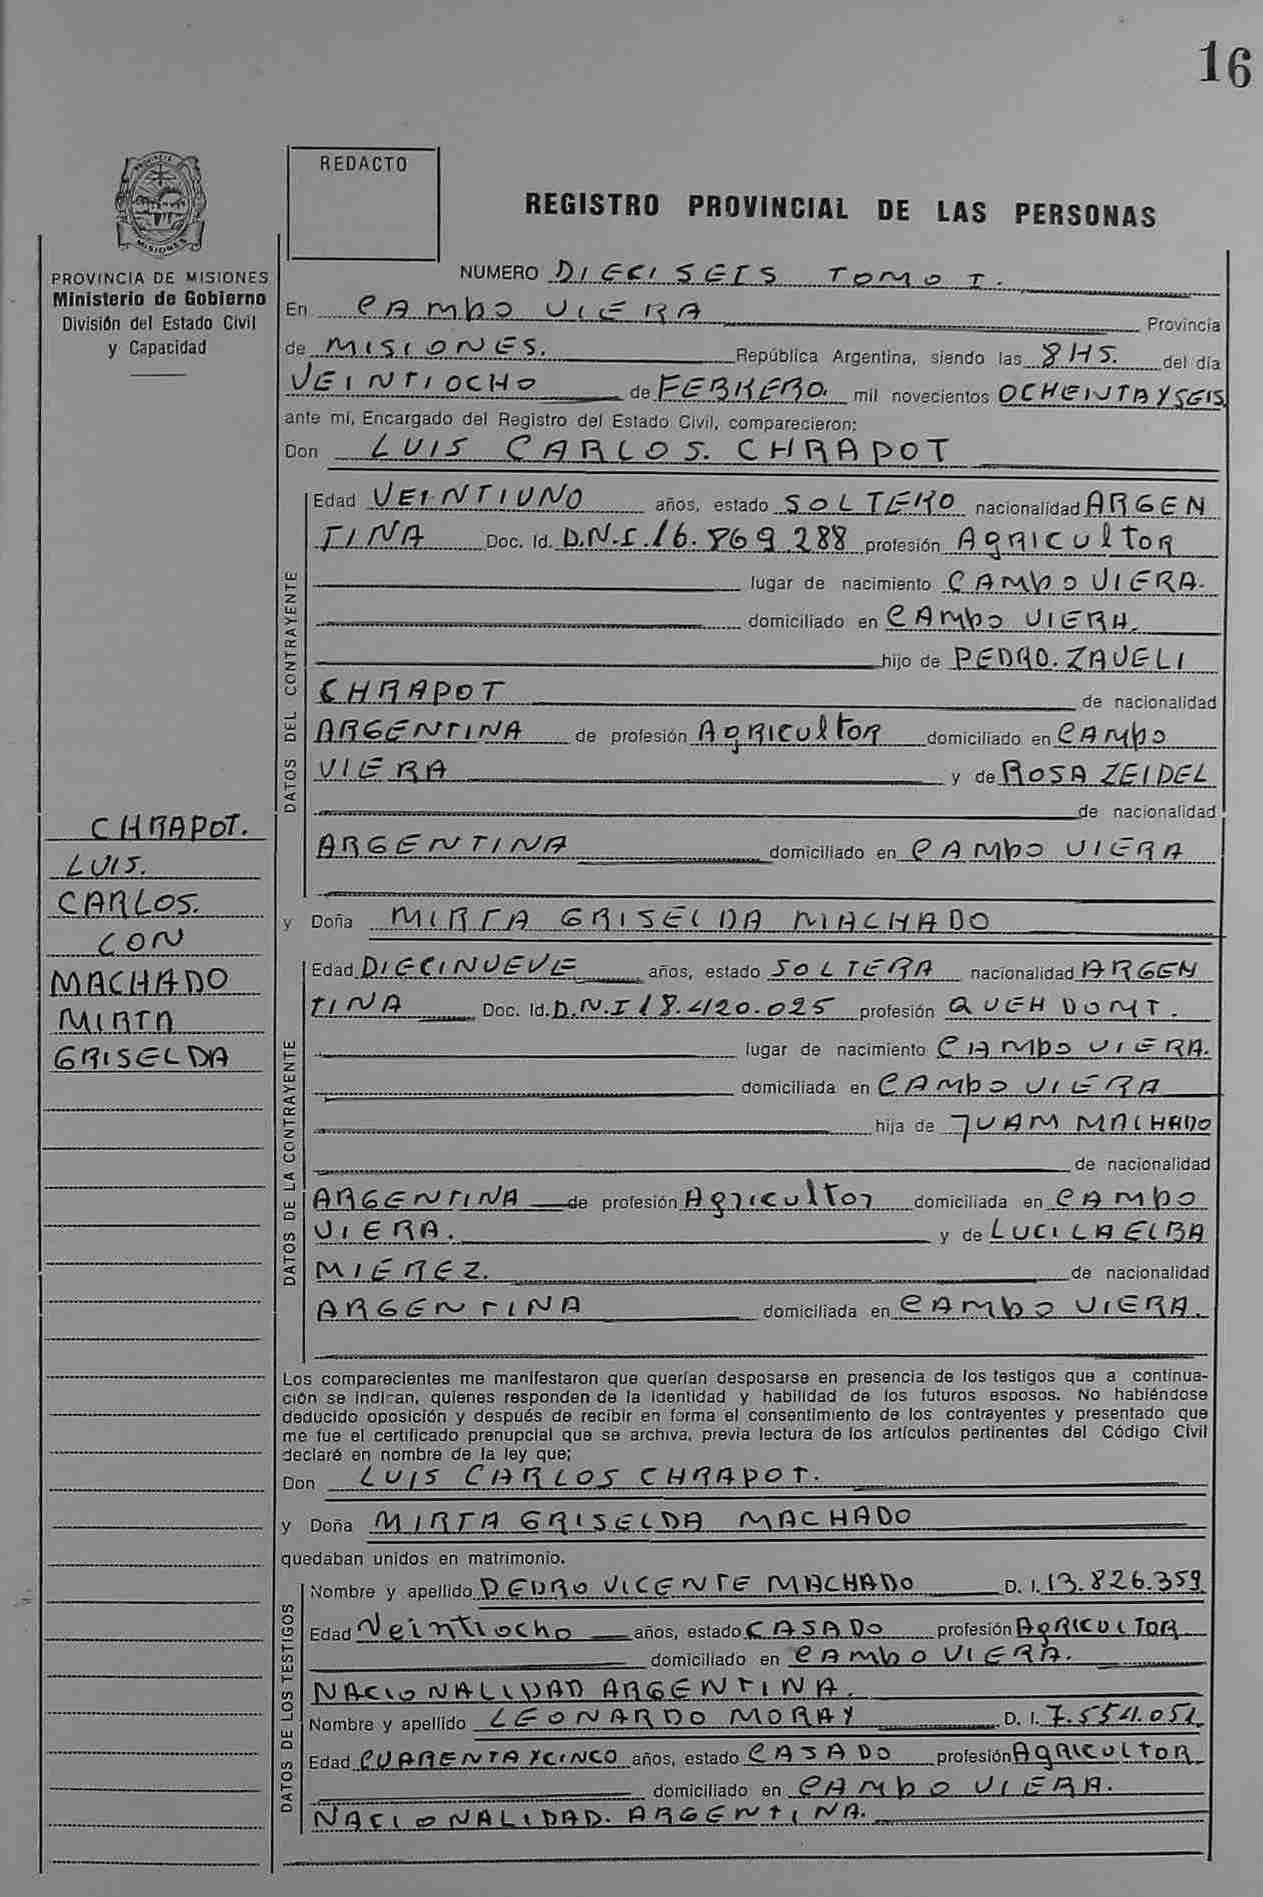 16
REDACTO
REGISTRO PROVINCIAL DE LAS PERSONAS
PROVINCIA DE MISIONES
Ministerio de Gobierno
División del Estado Civil
y Capacidad
NUMERO DIECISEIS TOMO I.
En CAMPO VIERA Provincia
de MISIONES. República Argentina, siendo las 8 HS. del día
VEINTIOCHO de FEBRERO. mil novecientos OCHENTA Y SEIS
ante mí, Encargado del Registro del Estado Civil, comparecieron:
Don LUIS CARLOS. CHRAPOT
DATOS DEL CONTRAYENTE
Edad VEINTIUNO años, estado SOLTERO nacionalidad ARGEN
TINA Doc. Id. D.N.I. 16.869.288 profesión Agricultor
lugar de nacimiento CAMPO VIERA.
domiciliado en CAMPO VIERA.
hijo de PEDRO. ZAVELI
CHRAPOT de nacionalidad
ARGENTINA de profesión Agricultor domiciliado en CAMPO
VIERA y de ROSA ZEIDEL
de nacionalidad
ARGENTINA domiciliado en CAMPO VIERA
CHRAPOT.
LUIS.
CARLOS.
CON
MACHADO
MIRTA
GRISELDA
y Doña MIRTA GRISELDA MACHADO
DATOS DE LA CONTRAYENTE
Edad DIECINUEVE años, estado SOLTERA nacionalidad ARGEN
TINA Doc. Id. D.N.I 18.420.025 profesión QUEH DOMT.
lugar de nacimiento CAMPO VIERA.
domiciliada en CAMPO VIERA
hija de JUAM MACHADO
de nacionalidad
ARGENTINA de profesión Agricultor domiciliada en CAMPO
VIERA. y de LUCILA ELBA
MIEREZ. de nacionalidad
ARGENTINA domiciliada en CAMPO VIERA.
Los comparecientes me manifestaron que querían desposarse en presencia de los testigos que a continua-
ción se indican, quienes responden de la identidad y habilidad de los futuros esposos. No habiéndose
deducido oposición y después de recibir en forma el consentimiento de los contrayentes y presentado que
me fue el certificado prenupcial que se archiva, previa lectura de los artículos pertinentes del Código Civil
declaré en nombre de la ley que;
Don LUIS CARLOS CHRAPOT.
y Doña MIRTA GRISELDA MACHADO
quedaban unidos en matrimonio.
DATOS DE LOS TESTIGOS
Nombre y apellido PEDRO VICENTE MACHADO D. I. 13.826.359
Edad Veintiocho años, estado CASADO profesión AgRICULTOR
domiciliado en CAMPO VIERA.
NACIONALIDAD ARGENTINA.
Nombre y apellido LEONARDO MORAY D. I. 7.554.051
Edad CUARENTA Y CINCO años, estado CASADO profesión AgRICULTOR
domiciliado en CAMPO VIERA.
NACIONALIDAD. ARGENTINA.